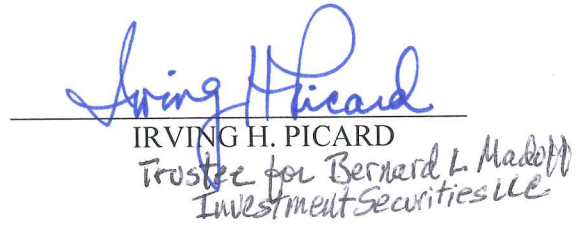 Irving H Picard
IRVING H. PICARD
Trustee for Bernard L. Madoff
Investment Securities LLC